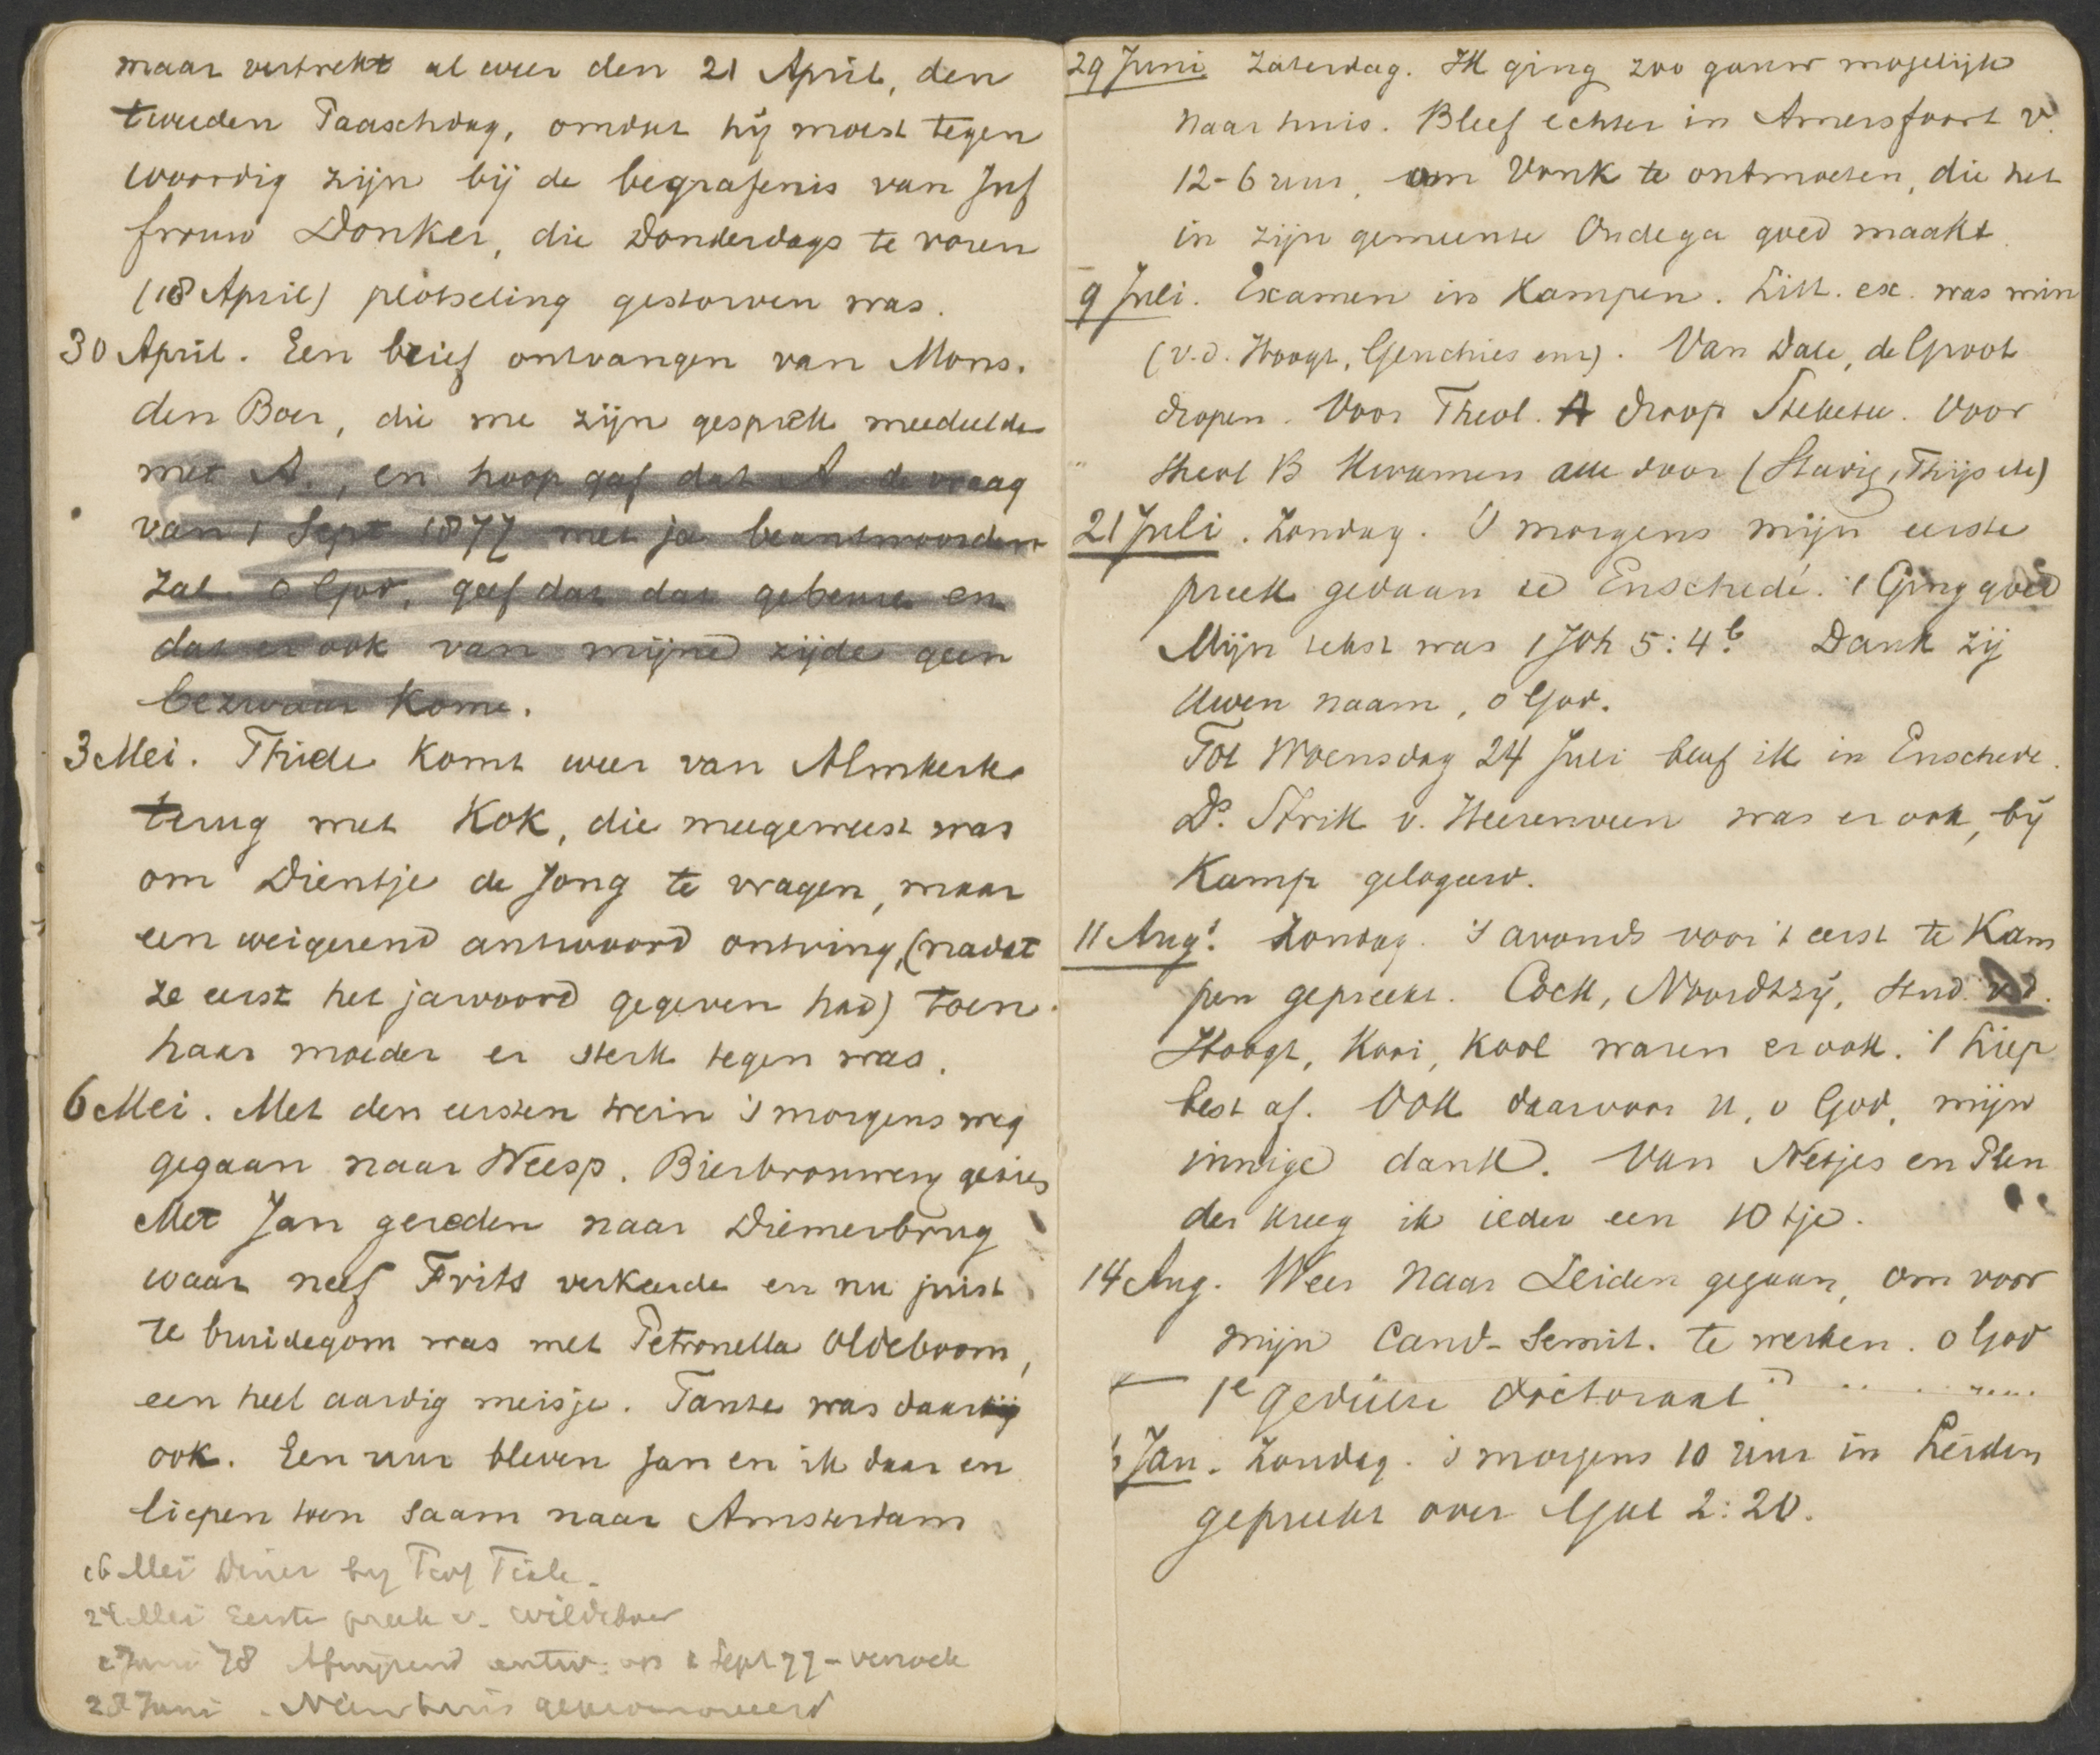 maar vertrekt al weer den 21 April, den
tweeden Paaschdag, omdat hij moest tegen
woordig zijn bij de begrafenis van Juf
frouw Donker, die Donderdags te voren
(18 April) plotseling gestorven was.
30 April. Een brief ontvangen van Mons.
den Boer, die me zijn gesprek meedeelde
met A., en hoop gaf dat A. de vraag
van 1 Sept 1877 met ja beantwoorden
zal. o God, geef dat dat gebeure en
dat er ook van mijne zijde geen
bezwaar kome.
3 Mei. Thide komt weer van Almkerk
terug met Kok, die meegeweest was
om Dientje de Jong te vragen, maar
een weigerend antwoord ontving, (nadat
ze eerst het jawoord gegeven had) toen
haar moeder er sterk tegen was.
6 Mei. Met den eersten trein 's morgens weg
gegaan naar Weesp. Bierbrouwerij gezien
Met Jan gereden naar Diemerbrug
waar neef Frits verkeerde en nu juist
te bruidegom was met Petronella Oldeboom,
een heel aardig meisje. Tante was daar
ook. Een uur bleven Jan en ik daar en
liepen toen saam naar Amsterdam
16 Mei Diner by Prof Tiele.
24 Mei Eerste preek v. Wildeboer
Juni 78 Afwijzend antw. op 1 Sept 77 - verzoek
28 Juni. Nieuwhuis gepromoveerd
29 Juni Zaterdag. Ik ging zoo gauw mogelijk
naar huis. Bleef echter in Amersfoort v.
12-6 uur, om Vonk te ontmoeten, die het
in zijn gemeente Oudega goed maakt.
9 Juli. Examen in Kampen. Litt. ex. was min
(v.d. Hoogt, ). Van Dale, de Groot
dropen. Voor Theol. A droop Steketee. Voor
theol B kwamen alle door (Stavig, Thijs etc)
21 Juli. Zondag. 's morgens mijn eerste
preek gedaan te Enschedé. 't Ging goed
Mijn tekst was 1 Joh 5:4b. Dank zij
Uwen naam, o God.
Tot Woensdag 24 Juli bleef ik in Enschede.
Ds. Strik v. Heerenveen was er ook, bij
Kamp gelogeerd.
11 Aug. Zondag. 's avonds voor 't eerst te Kam
pen gepreekt. Cock, Noordtzij, Stud. v.d.
Hoogt, Kooi, Kool waren er ook. 't Liep
best af. Ook daarvoor U, o God, mijn
innige dank. Van Netjes en Plen
der kreeg ik ieder een 10 tje.
14 Aug. Weer naar Leiden gegaan, om voor
mijn Cand-Semit. te werken. o God
1e gedeelte doctoraal
Jan. Zondag. 's morgens 10 uur in Leiden
gepreekt over Gal 2:20.